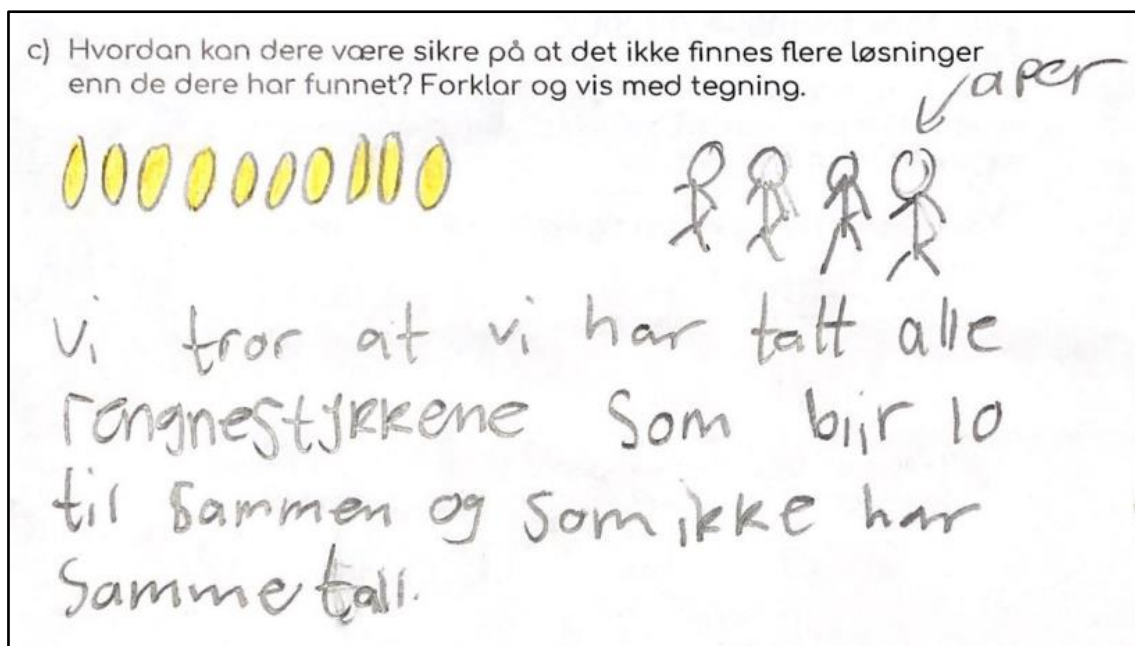 c) Hvordan kan dere være sikre på at det ikke finnes flere løsninger
enn de dere har funnet? Forklar og vis med tegning.
aper
Vi tror at vi har talt alle
rengnestykkene som blir 10
til sammen og som ikke har
samme tall.